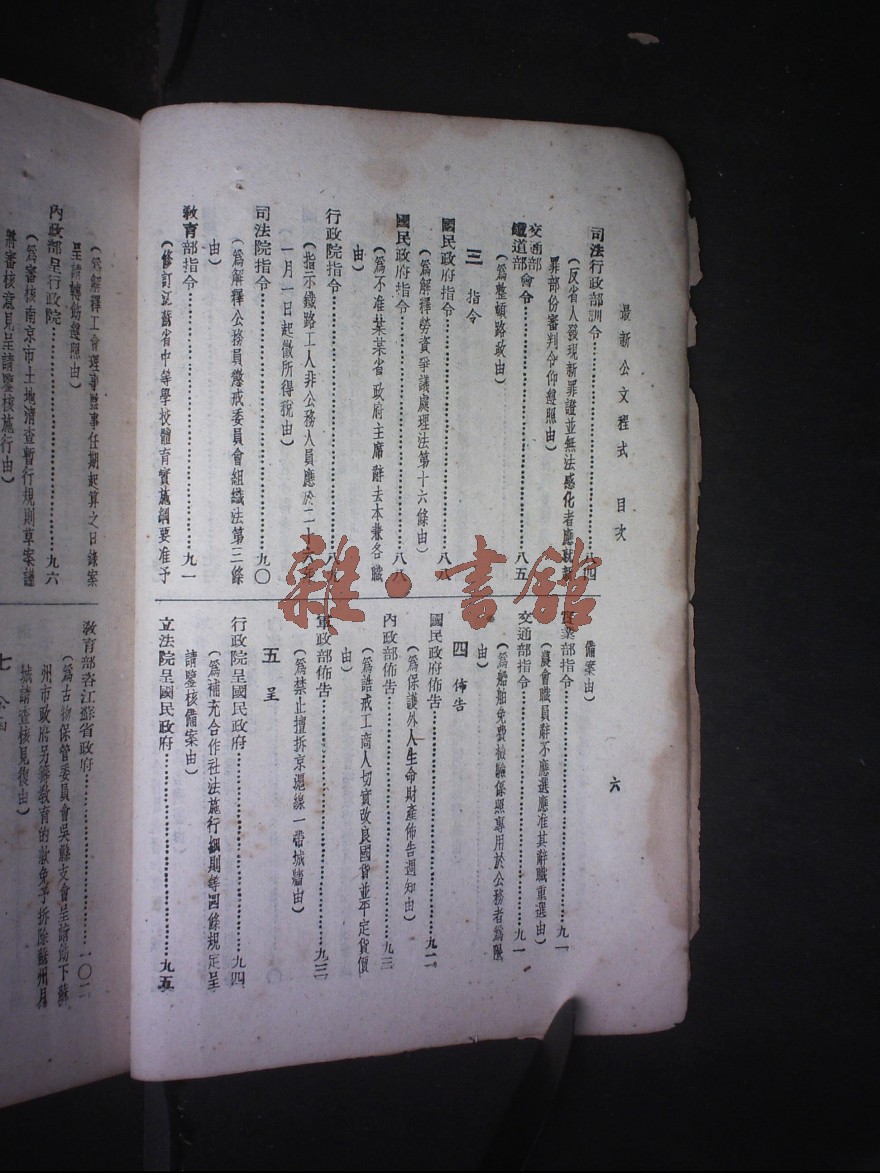 最新公文程式 目次
六
司法行政部訓令……八四
(反省人發現新罪證並無法感化者應就新
罪部份審判令仰遵照由)
交通部
鐵道部會令……八五
(為整頓路政由)
三 指令
國民政府指令……八八
(為解釋勞資爭議處理法第十六條由)
國民政府指令……八八
(為不准某某省政府主席辭去本兼各職
由)
行政院指令……八九
(指示鐵路工人非公務人員應於二十六年
一月一日起徵所得稅由)
司法院指令……九〇
(為解釋公務員懲戒委員會組織法第三條
由)
教育部指令……九一
(修訂江蘇省中等學校體育實施綱要准予
備案由)
實業部指令……九一
(農會職員辭不應選應准其辭職重選由)
交通部指令……九一
(為船舶免費檢驗係照專用於公務者為限
由)
四 佈告
國民政府佈告……九二
(為保護外人生命財產佈告週知由)
內政部佈告……九三
(為誥戒工商人切實改良國貨並平定貨價
由)
軍政部佈告……九三
(為禁止擅拆京滬線一帶城牆由)
五 呈
行政院呈國民政府……九四
(為補充合作社法施行細則等四條規定呈
請鑒核備案由)
立法院呈國民政府……九五
(為解釋工會理事監事任期起算之日錄案
呈請轉飭遵照由)
內政部呈行政院……九六
(為審核南京市土地清查暫行規則草案謹
將審核意見呈請鑒核施行由)
教育部咨江蘇省政府……一〇二
(為古物保管委員會吳縣支會呈請飭下蘇
州市政府另籌教育的款免予拆除蘇州月
城請查核見復由)
七 公函
雜·書館